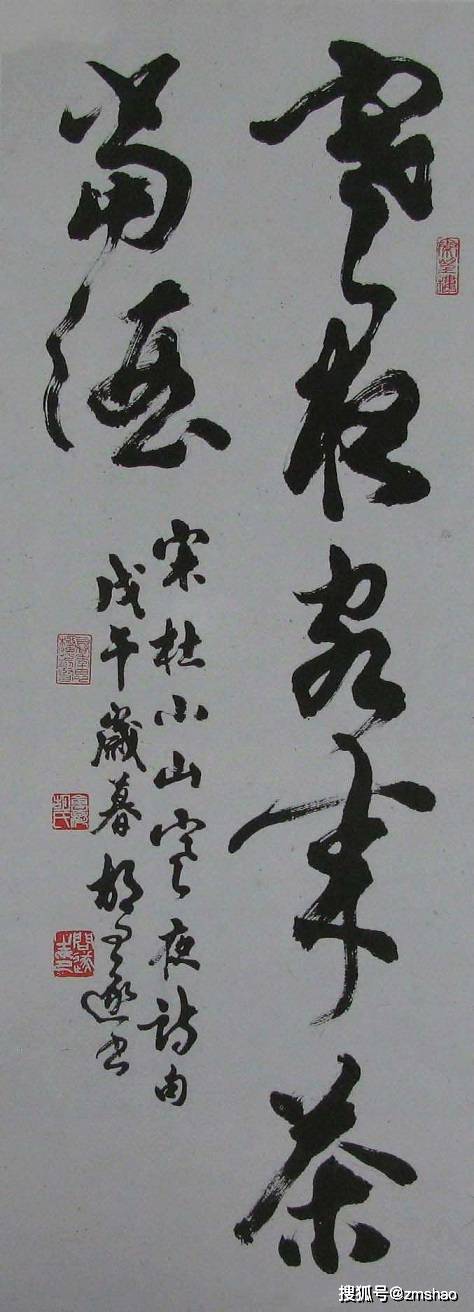 寒夜客来茶
当酒
宋杜小山寒夜诗句
戊午岁暮胡问遂书
搜狐号@zmshao